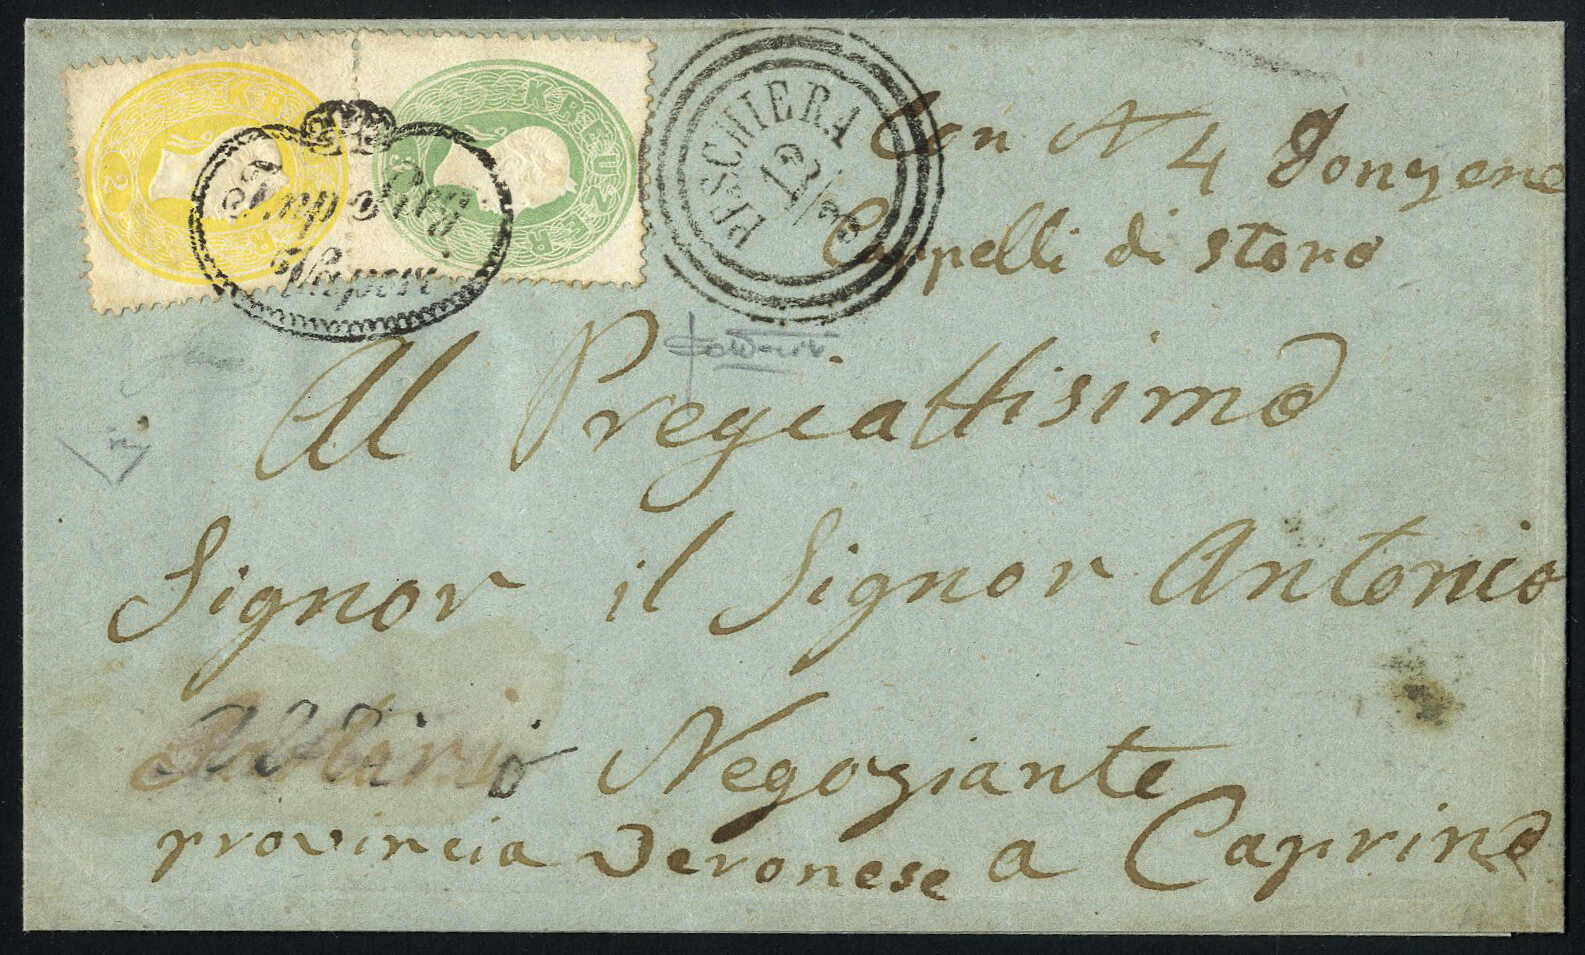 2 KREUZER
3 KREUZER
Imp. Reg.
du
Vapore
PESCHIERA
12/
Con N 4
Cappelli di storo
Al Pregiattisimo
Signor il Signor Antonio
Negoziante
provincia Veronese a Caprino